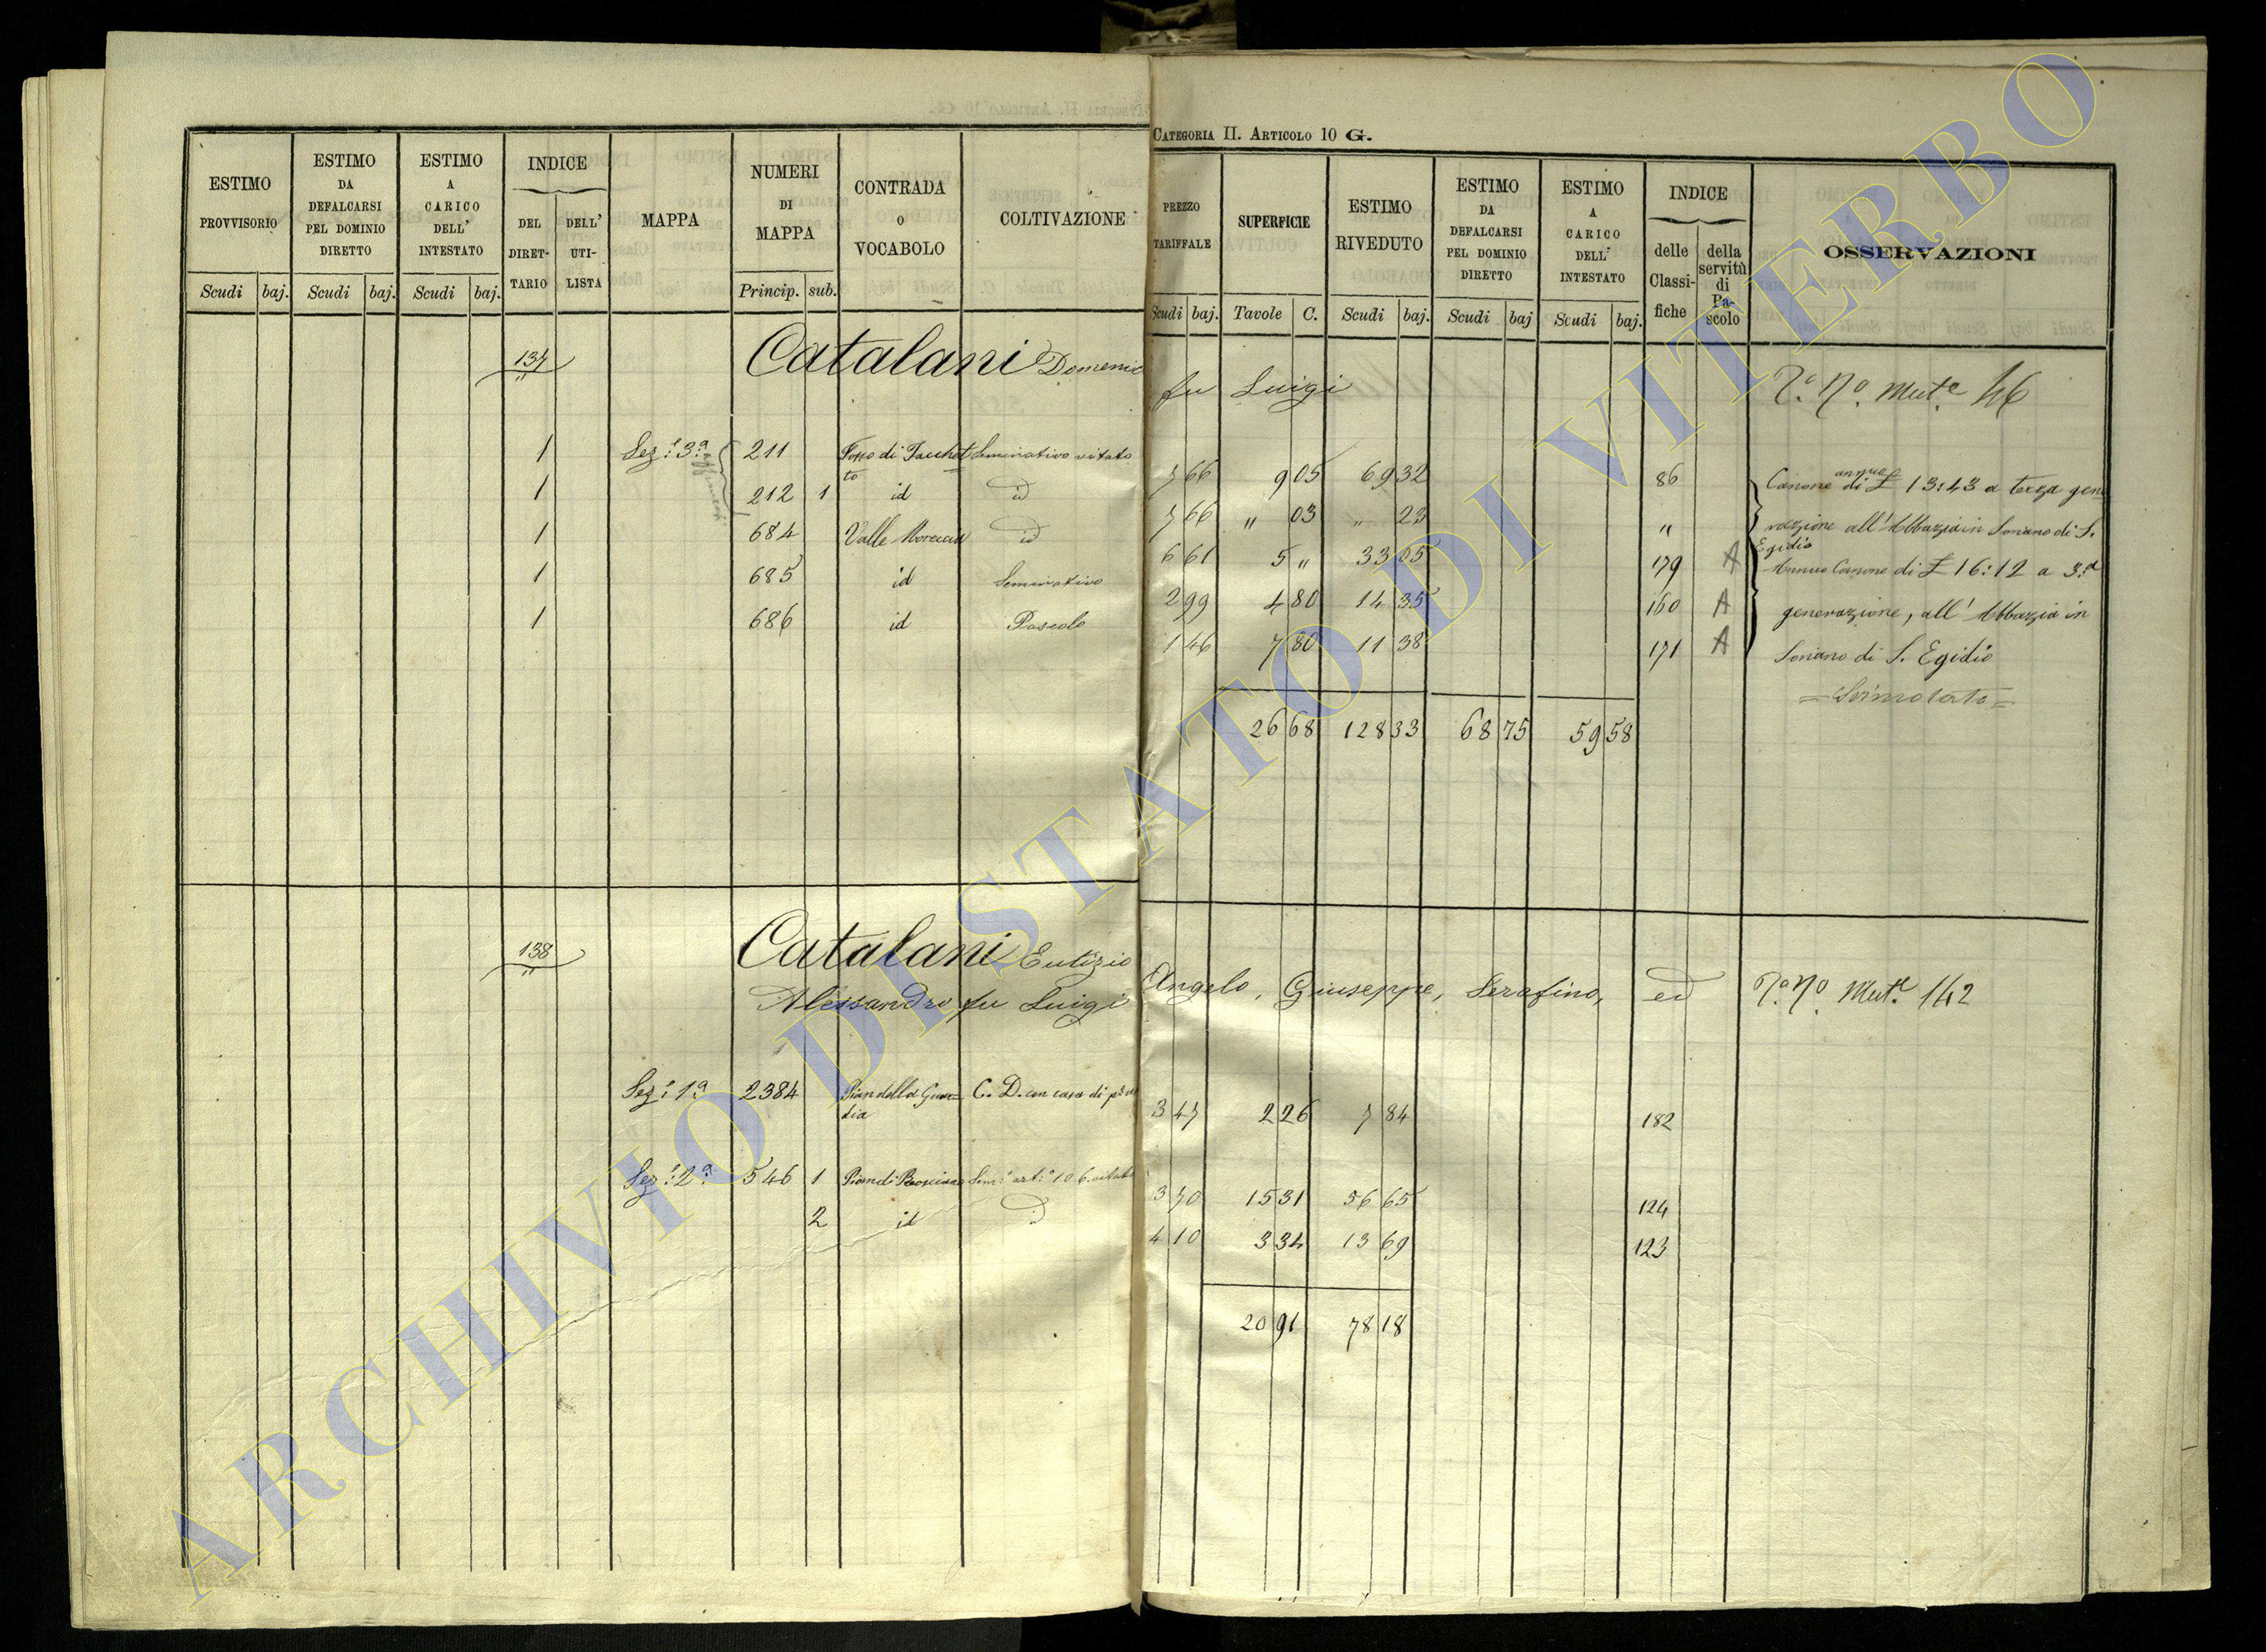 CATEGORIA II. ARTICOLO 10 G.
ESTIMO PROVVISORIO Scudi baj.
ESTIMO DA DEFALCARSI PEL DOMINIO DIRETTO Scudi baj.
ESTIMO A CARICO DELL' INTESTATO Scudi baj.
INDICE DEL DIRET-TARIO DELL' UTI-LISTA
MAPPA
NUMERI DI MAPPA Princip. sub.
CONTRADA o VOCABOLO
COLTIVAZIONE
PREZZO TARIFFALE Scudi baj.
SUPERFICIE Tavole C.
ESTIMO RIVEDUTO Scudi baj.
ESTIMO DA DEFALCARSI PEL DOMINIO DIRETTO Scudi baj
ESTIMO A CARICO DELL' INTESTATO Scudi baj.
INDICE delle Classi-fiche della servitù di Pa-scolo
OSSERVAZIONI
137 Catalani Domenico fu Luigi Mut.e 46
1 Sez.e 3a 211 Fosso di Seminativo vitato 7 66 9 05 69 32 86 Canone annuo di £ 13:43 a terza gene
1 212 1 id id 7 66 " 03 " 23 " razione all' Abbazia in Soriano di S. Egidio
1 684 Valle id 6 61 5 " 33 05 179 A Annuo Canone di £ 16:12 a 3.a
1 685 id Seminativo 2 99 4 80 14 35 160 A generazione, all' Abbazia in
1 686 id Pascolo 1 46 7 80 11 38 171 A Soriano di S. Egidio
26 68 128 33 68 75 59 58
138 Catalani Eutizio Angelo, Giuseppe, Serafino, ed Mut.e 142
Alessandro fu Luigi
Sez.e 1a 2384 Pian della Guardia C. D. con casa di 3 47 2 26 7 84 182
Sez.e 2a 546 1 Pian di 3 70 15 31 56 65 124
2 id id 4 10 3 34 13 69 123
20 91 78 18
ARCHIVIO DI STATO DI VITERBO